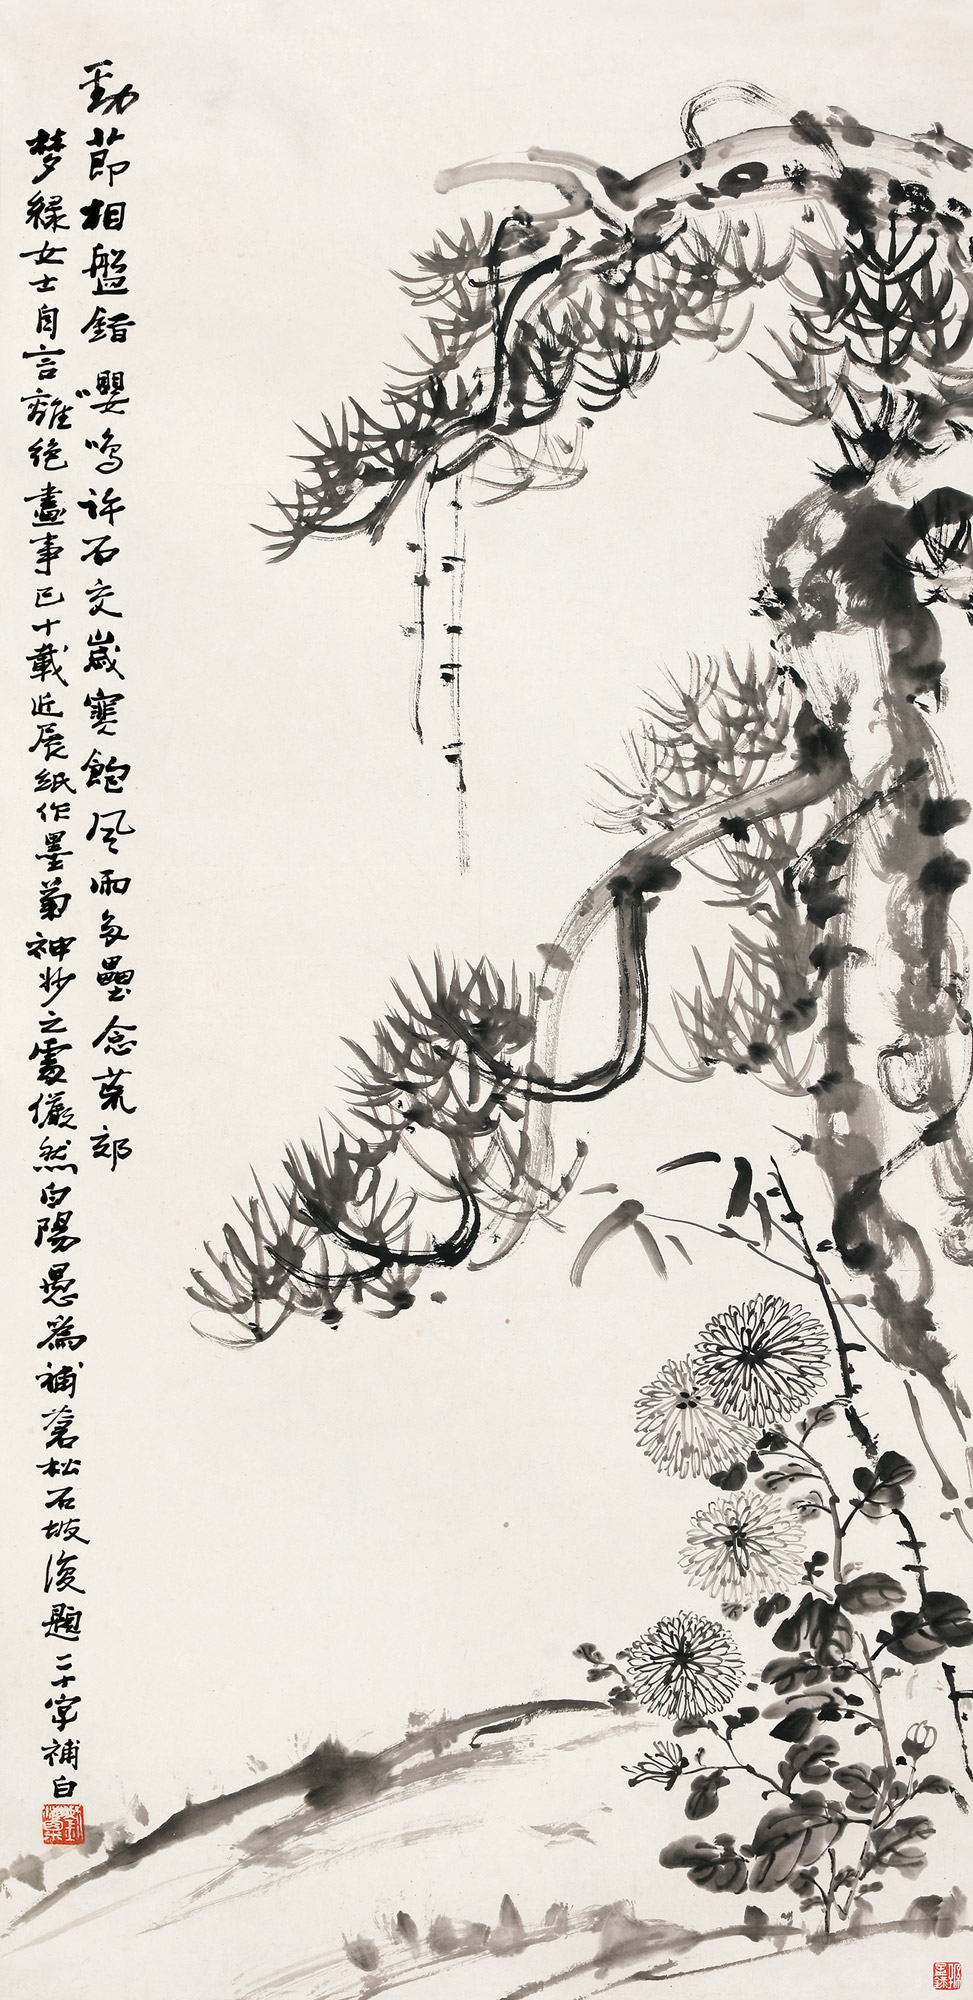 勁節相盤錯嚶鳴許石交歲寒飽風雨多壘念荒郊
梦綠女士自言離絕畫事已十載近展紙作墨菊神妙之處儼然白陽愚為補蒼松石坡復題二十字補白